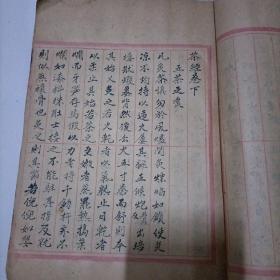 茶經卷下
五茶之煮
凡炙茶慎勿於風燼間炙熛焰如鑽使炎
涼不均持以逼火屢其翻正候炮出培
塿狀蝦蟆背然後去火五寸卷而舒則本
其始又炙之若火乾者以氣熟止日乾者
以柔止其始若茶之至嫩者蒸罷熱搗葉
爛而牙笋存焉假以力者持千鈞杵亦不之
爛如漆科珠壯士接之不能駐其指及就
則似無穰骨也炙之則其節若倪倪如嬰